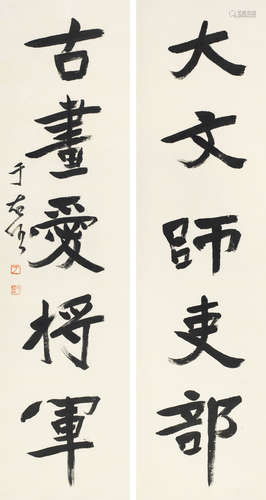 大文師吏部
古畫愛將軍
于右任